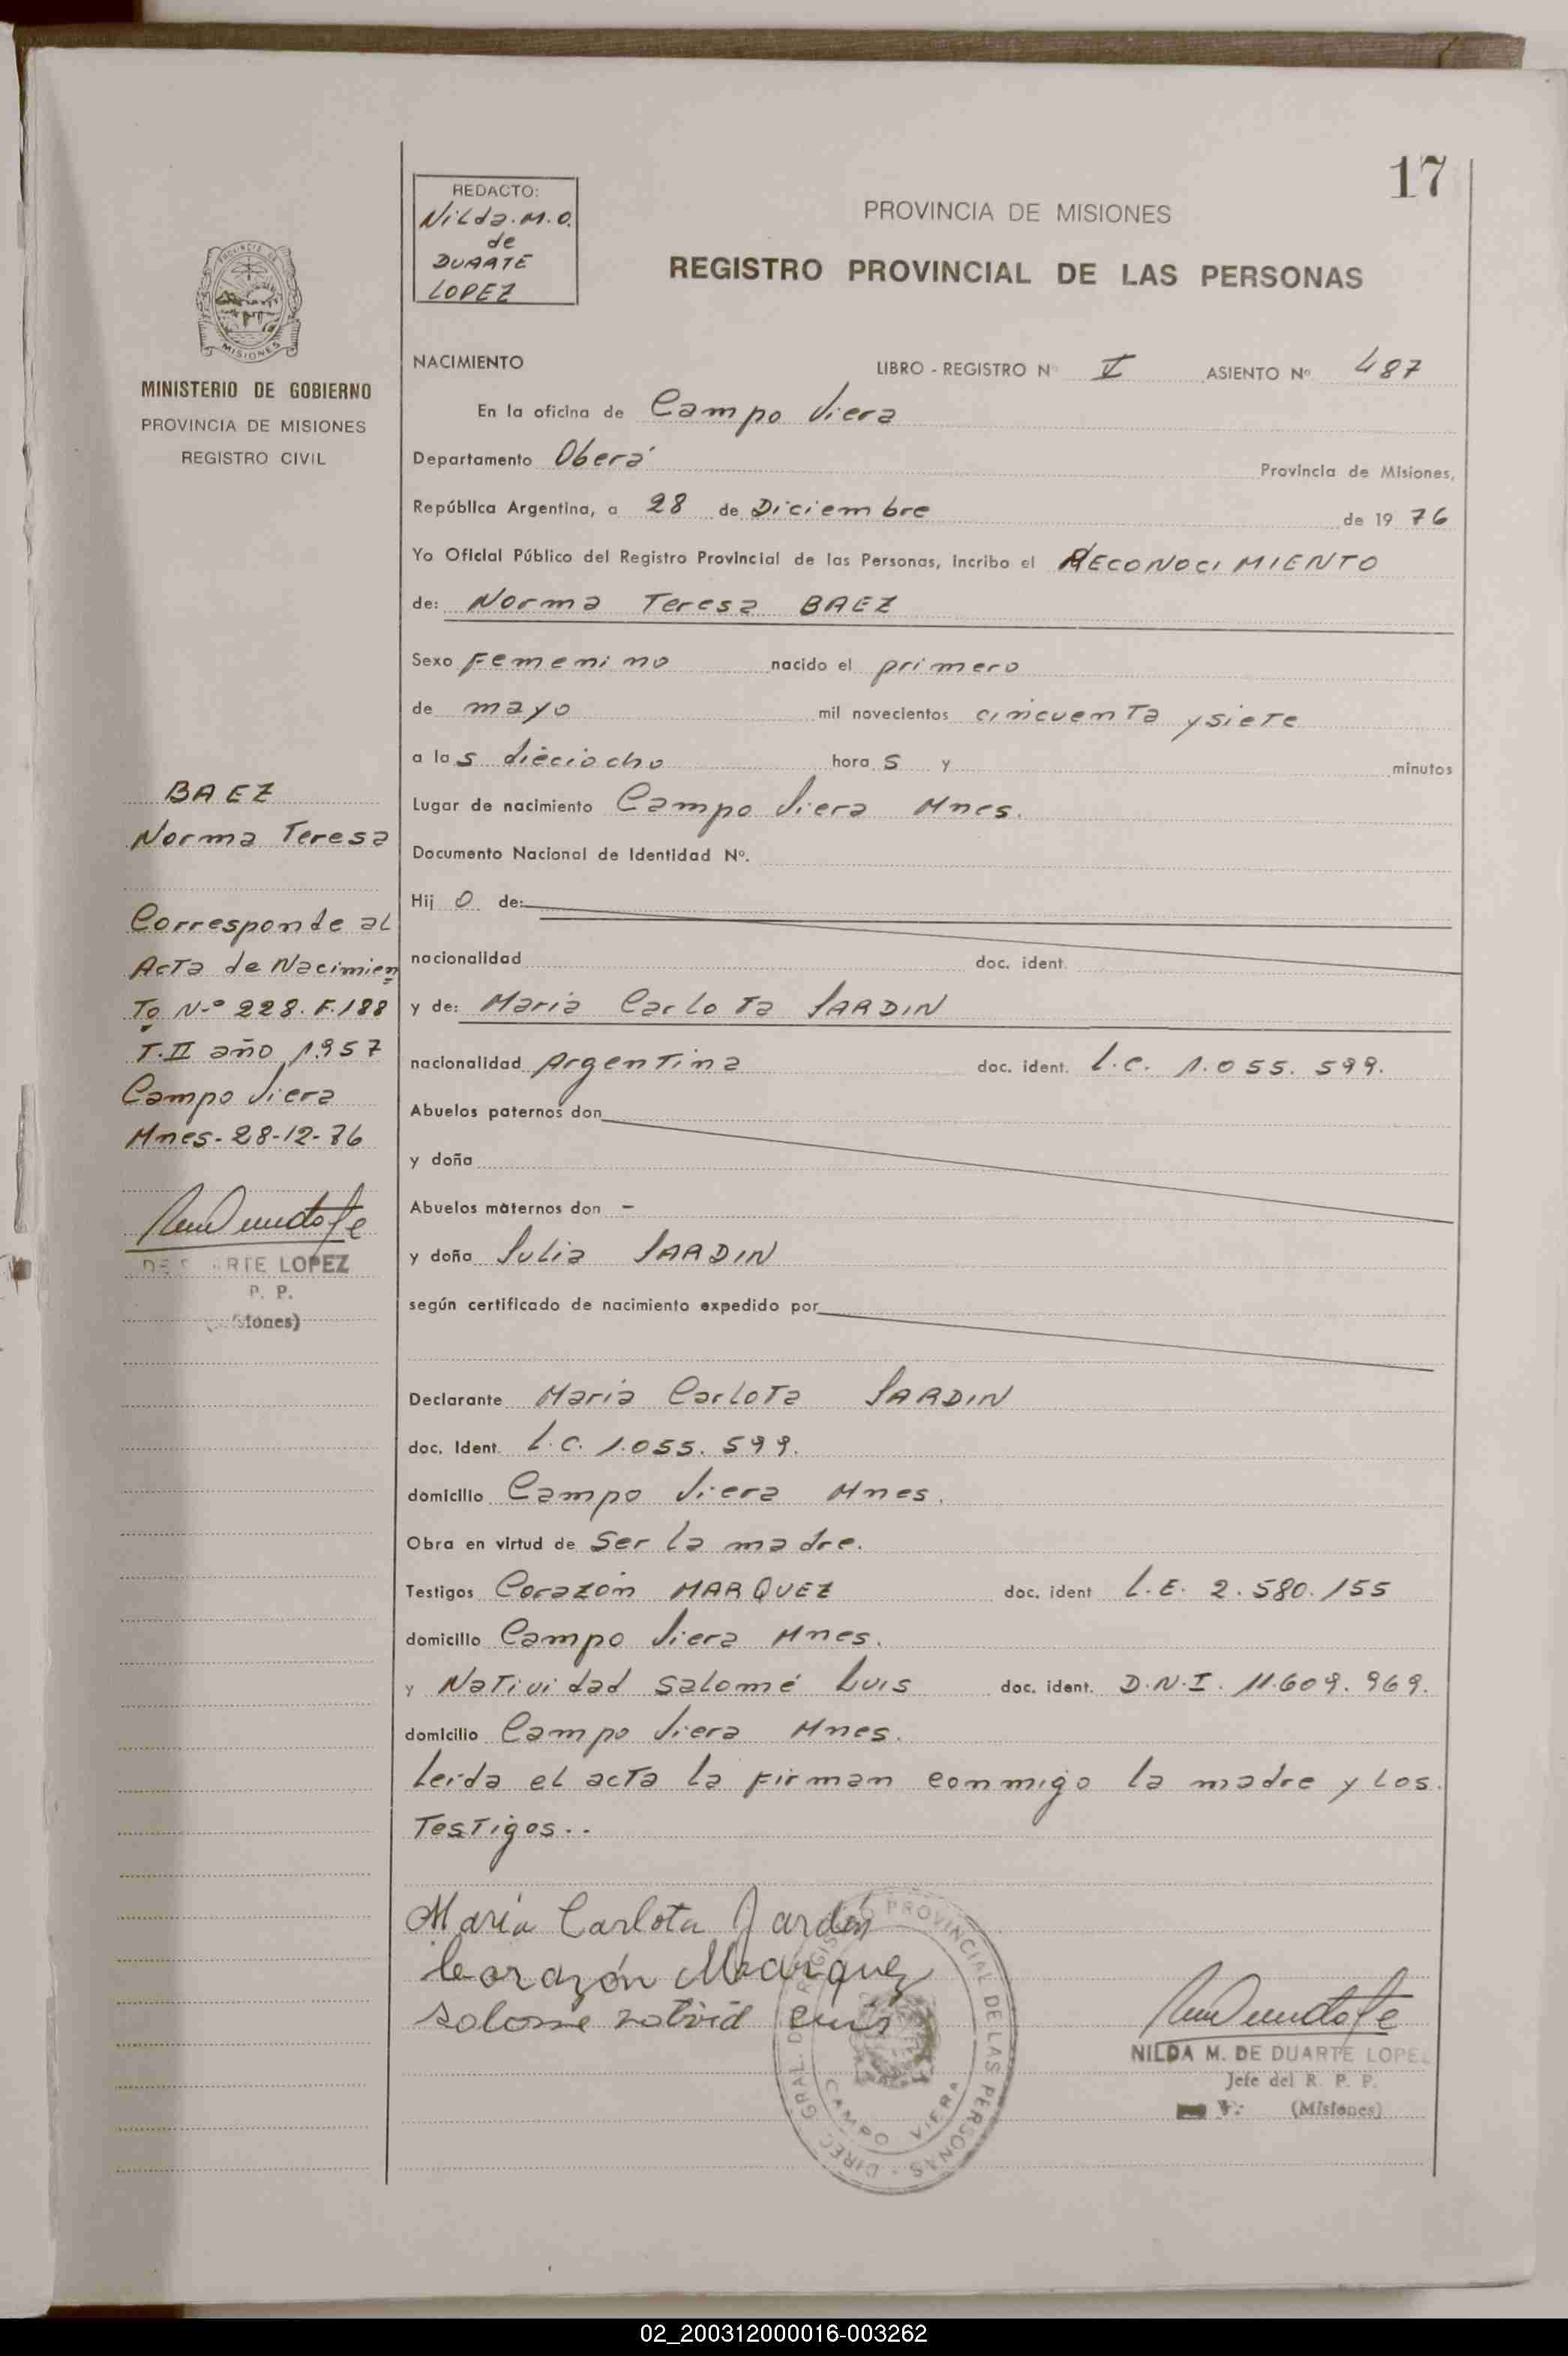 17
REDACTO:
Nilda.M.O.
de
DUARTE
LOPEZ
PROVINCIA DE MISIONES
REGISTRO PROVINCIAL DE LAS PERSONAS
PROVINCIA DE
MISIONES
MINISTERIO DE GOBIERNO
PROVINCIA DE MISIONES
REGISTRO CIVIL
NACIMIENTO LIBRO - REGISTRO Nº V ASIENTO Nº 487
En la oficina de Campo Viera
Departamento Oberá Provincia de Misiones,
República Argentina, a 28 de Diciembre de 19 76
Yo Oficial Público del Registro Provincial de las Personas, incribo el RECONOCIMIENTO
de: Norma Teresa BAEZ
Sexo Femenino nacido el primero
de mayo mil novecientos cincuenta y siete
a las dieciocho horas y minutos
Lugar de nacimiento Campo Viera Mnes.
Documento Nacional de Identidad Nº.
Hijo de:
nacionalidad doc. ident.
y de: Maria Carlota JARDIN
nacionalidad Argentina doc. ident. L.C. 1.055.599.
Abuelos paternos don
y doña
Abuelos maternos don -
y doña Julia JARDIN
según certificado de nacimiento expedido por
Declarante Maria Carlota JARDIN
doc. Ident. L.C. 1.055.599.
domicilio Campo Viera Mnes.
Obra en virtud de ser la madre.
Testigos Corazón MARQUEZ doc. ident L.E. 2.580.155
domicilio Campo Viera Mnes.
y Natividad Salomé Luis doc. ident. D.N.I. 11.609.969.
domicilio Campo Viera Mnes.
Leida el acta la firman conmigo la madre y los
Testigos..
BAEZ
Norma Teresa
Corresponde al
Acta de Nacimien
To N.º 228. F.188
T.II año 1957
Campo Viera
Mnes-28-12-76
DE DUARTE LOPEZ
P. P.
(Misiones)
María Carlota Jardín
Corazón Marquez
Salomé Luis
DIREC. GRAL. DE REGISTRO PROVINCIAL DE LAS PERSONAS
CAMPO VIERA
NILDA M. DE DUARTE LOPEZ
Jefe del R. P. P.
V: (Misiones)
02_200312000016-003262